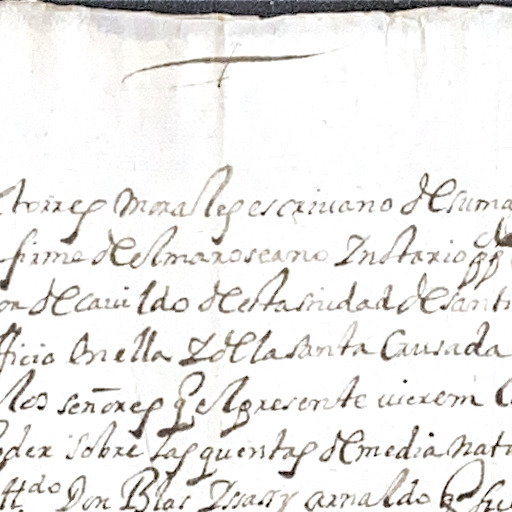 torres Morales escriuano de su ma
firme del mar oseano Y notario pp
or de cauildo desta siudad de santi
fficio en ella Y de la santa Crusada
los señores q el presente vieren C
oder sobre las quentas de media nata
tt.do Don Blas Ysassy arnaldo